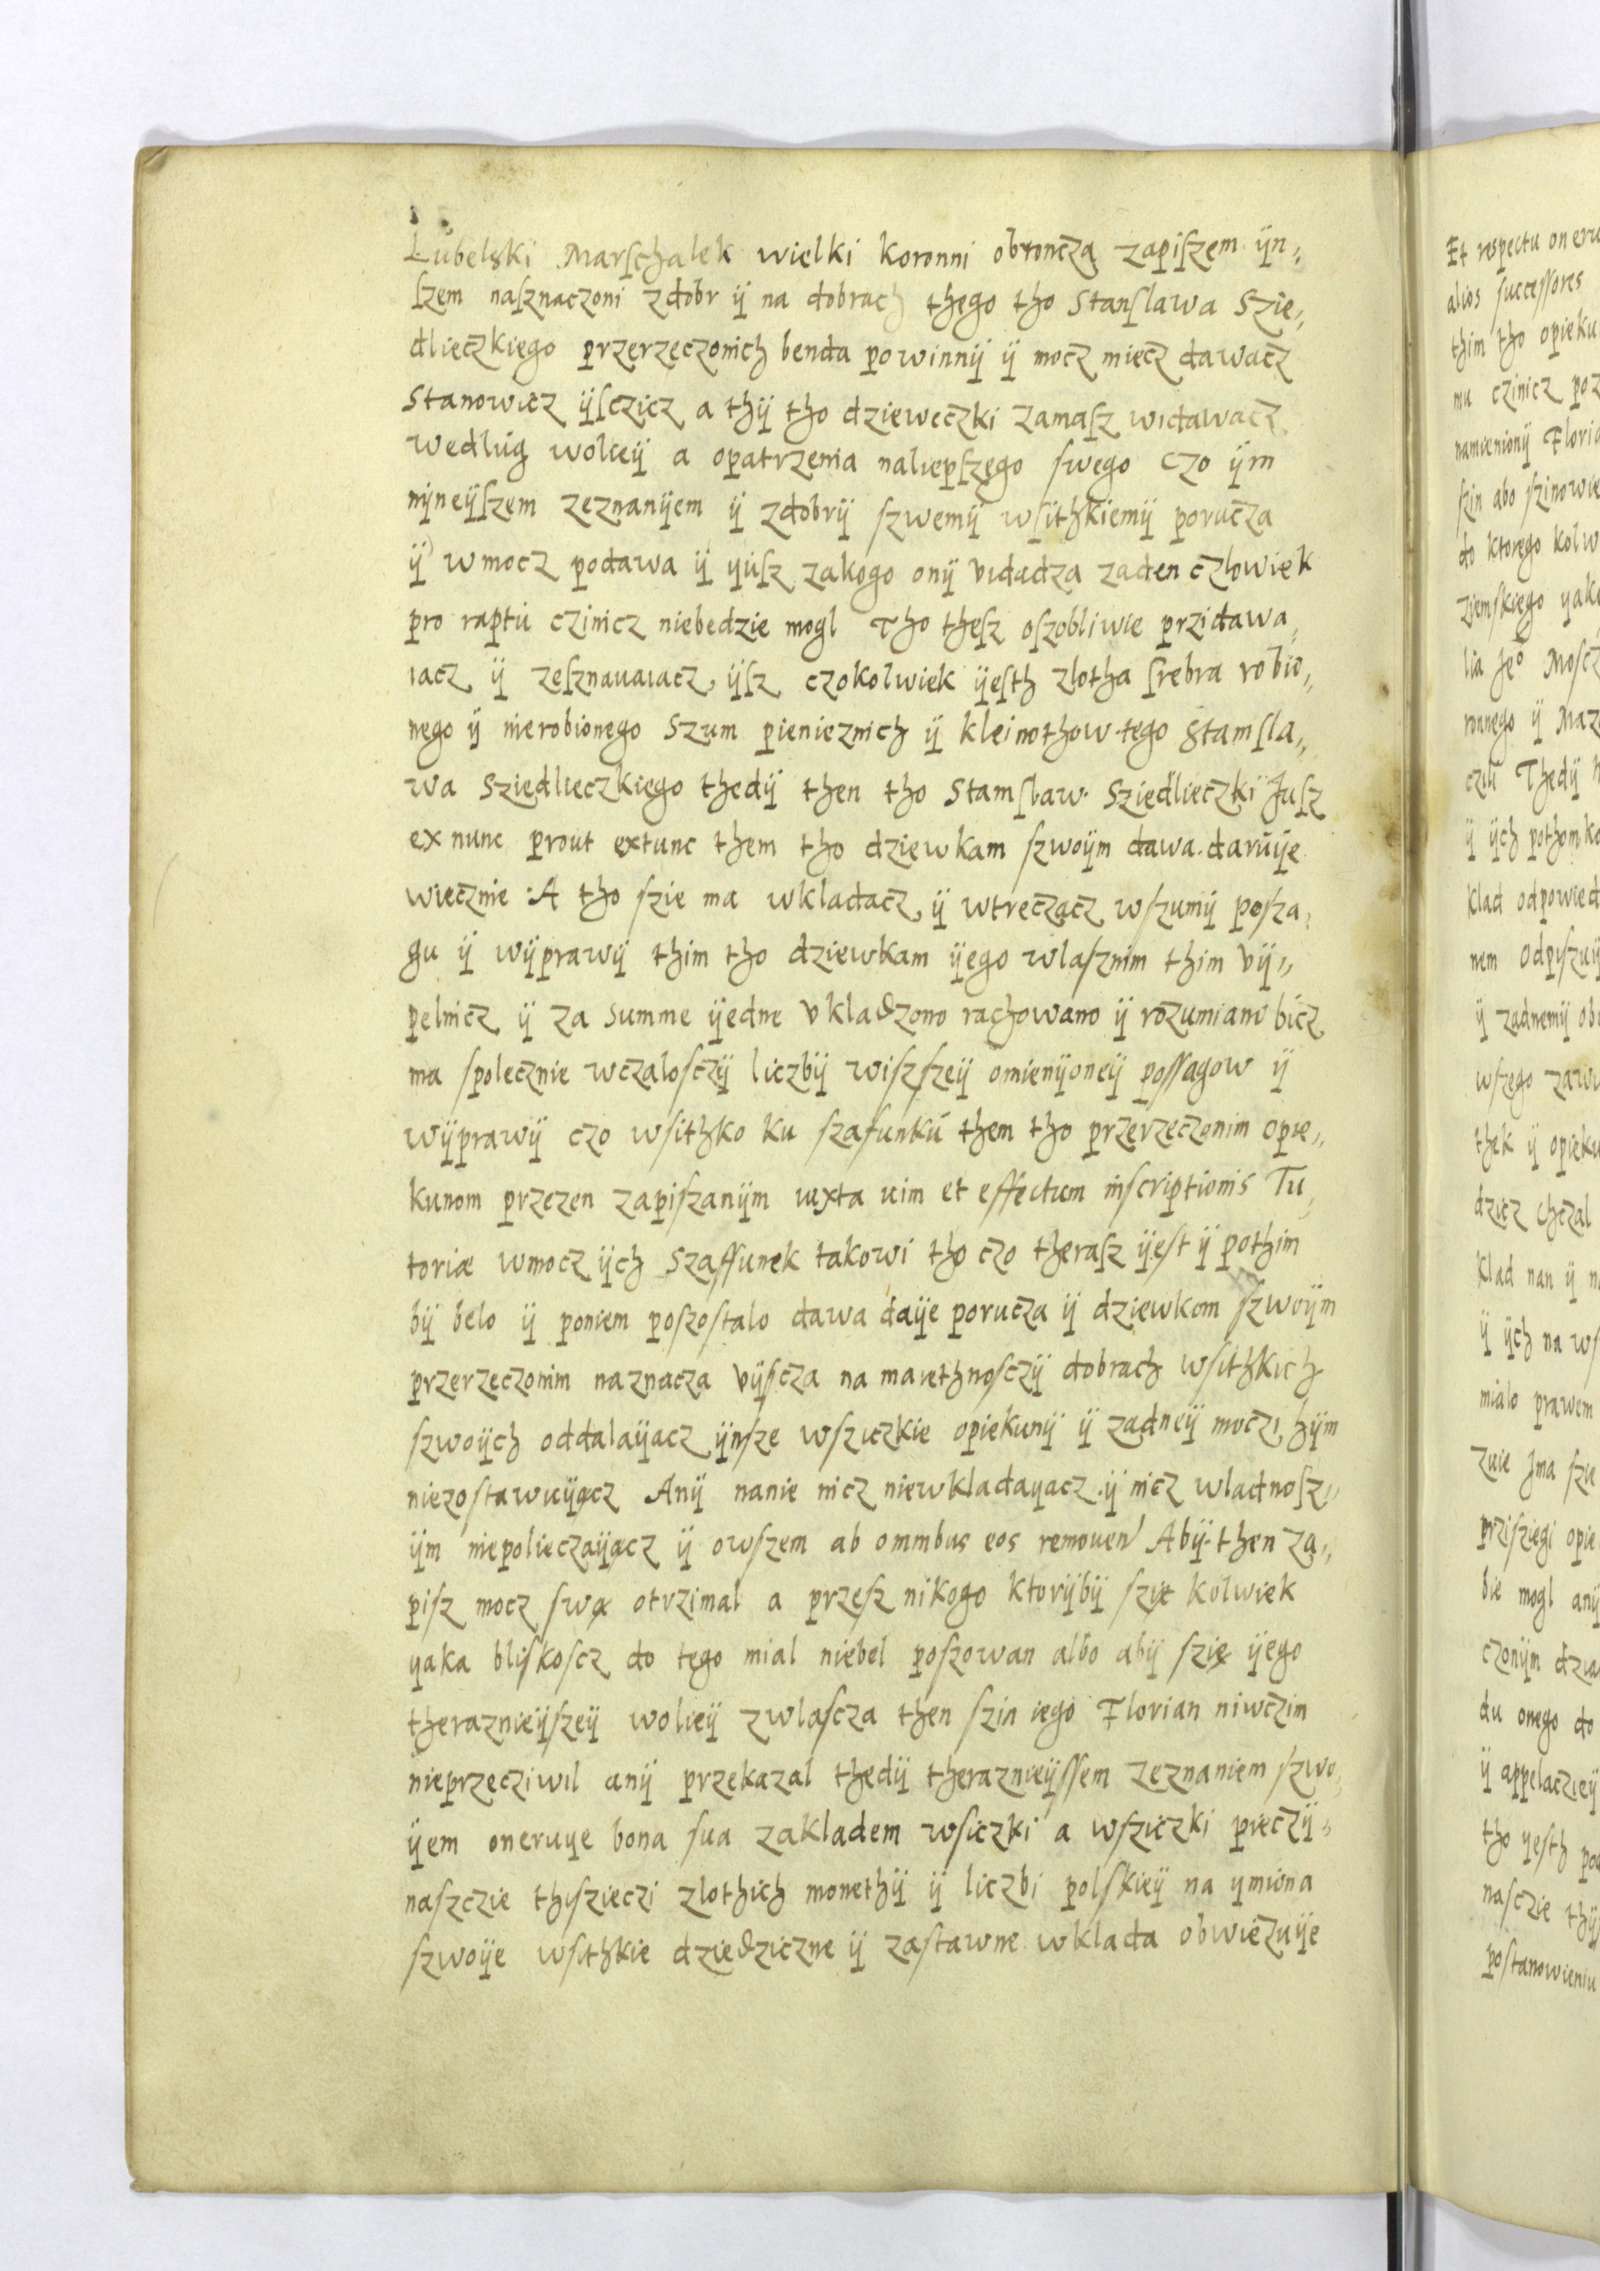 Lubelski Marſchalek wielki koronni obroncza zapiſzem ÿn„
ſzem naſznaczoni zdobr ÿ na dobrach thego tho Stanſlawa Szie„
dlieczkiego przerzeczonich benda powinnÿ ÿ mocz miecz dawacz
Stanowicz ÿſczicz a thÿ tho dzieweczki zamaſz widawacz
wedlug wolieÿ a opatrzenia naliepſzego ſwego czo ÿm
nÿneÿſzem zeznanÿem ÿ zdobrÿ ſzwemÿ wſithkiemÿ porucza
ÿ wmocz podawa ÿ yuſz zakogo onÿ vidadza zaden czlowiek
pro raptu czinicz niebedzie mogl Tho theſz oſzobliwie przidawa„
iacz ÿ zeſznauaiacz ÿſz czokolwiek ÿeſth zlotha ſrebra robio„
nego ÿ nierobionego Szum pienieznich ÿ kleinothow tego Staniſla„
wa Sziedlieczkiego thedÿ then tho Staniſlaw Sziedlieczki Juſz
ex nunc prout extunc them tho dziewkam ſzwoÿm dawa daruÿe
wiecznie A tho ſzie ma wkladacz ÿ wtreczacz wſzumÿ poſza„
gu ÿ wÿprawÿ thim tho dziewkam ÿego wlaſznim thim vÿ„
pelnicz ÿ za summe ÿedne vkladzono rachowano ÿ rozumiano bicz
ma ſpolecznie wczaloſczÿ liczbÿ wiſzſzeÿ omienÿoneÿ poſſagow ÿ
wÿprawÿ czo wſithko ku ſzafunku them tho przerzeczonim opie„
kunom przezen zapiſzanÿm iuxta uim et effectum inſcriptionis Tu„
toriæ wmocz ÿch Szaffunek takowi tho czo theraſz ÿeſt ÿ pothim
bÿ belo ÿ poniem poſzoſtalo dawa daÿe porucza ÿ dziewkom ſzwoÿm
przerzeczonim naznacza vÿſcza na maiethnoſczÿ dobrach wſithkich
ſzwoÿch oddalaÿacz ÿnſze wſziczkie opiekunÿ ÿ zadneÿ moczi hÿm
niezoſtawuÿacz Anÿ nanie nicz niewkladayacz ÿ nicz wladnoſz„
ÿm niepolieczaÿacz ÿ owſzem ab omnibus eos remouen Abÿ then za„
piſz mocz ſwa otrzimal a przeſz nikogo ktorÿbÿ ſzie kolwiek
yaka bliſkoſcz do tego mial niebel poſzowan albo abÿ ſzie ÿego
theraznieÿſzeÿ wolieÿ zwlaſcza then ſzin iego Florian niwczim
nieprzecziwil anÿ przekazal thedÿ theraznieÿſſem zeznaniem ſzwo„
ÿem oneruye bona ſua zakladem wſiczki a wſziczki pieczÿ„
naſzczie thiſzieczi zlothich monethÿ ÿ liczbi polſkieÿ na ymiona
ſzwoÿe wſithkie dziedziczne ÿ zaſtawne wklada obwiezuÿe
Et respectu oneru
alios ſucceſſores
thim tho opieku
mu czinicz poz
namienionÿ Floria
ſzin abo ſzinowie
do ktorego kolw
ziemſkiego yako
ronnego ÿ Maz
czili Thedÿ
ÿ ÿch pothomko
klad odpowied
nem odpiſzuÿ
ÿ zadnemÿ obi
wſzego zawi
thek ÿ opieku
dzicz chczal
klad nan ÿ n
ÿ ÿch na wſ
mialo prawem
zuie Jma ſzie
prziſziegi opie
bie mogl anÿ
czonÿm dzia
du onego do
ÿ appelaczieÿ
tho yeſth po
naſczie thÿ
poſtanowieniu